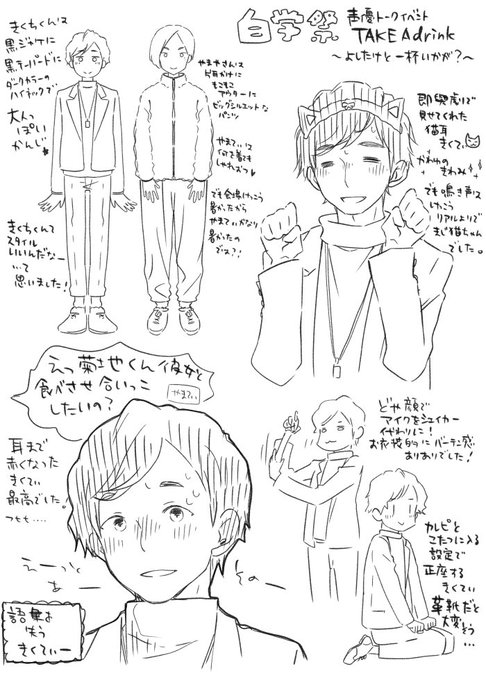 白学祭
声優トークイベント
TAKE A drink
〜よしたけと一杯いかが?〜
きくちくんは
黒ジャケに
黒テーパードに
ダークカラーの
ハイネックで
大人っ
ぽい
かんじ
きくちくんて
スタイル
いいんだなー
…って
思いました!
やまやさんは
もこもこ
アウターに
ビッグシルエットな
パンツ
やまてぃは
何を着ても
しゃれオツ
でも会場けっこう
暑かったから
やまてぃかなり
暑かったの
では?!
即興劇で
見せてくれた
猫耳
きくてぃ
かわゆの
きわみ
でも鳴き声は
けっこう
リアルよりで
まじ猫ちゃん
でした。
えっ菊地くん彼女と
食べさせ合いっこ
したいの?
やまてぃ
耳まで
赤くなった
きくてぃ
最高でした。
つもも……
えーっと
あー
そのー
語彙を
失う
きくてぃー
どや顔で
マイクをシェイカー
代わりに!
お衣装的にバーテン感
ありありでした!
カレピと
こたつに入る
設定で
正座する
きくてぃ
革靴だと
大変そう
…